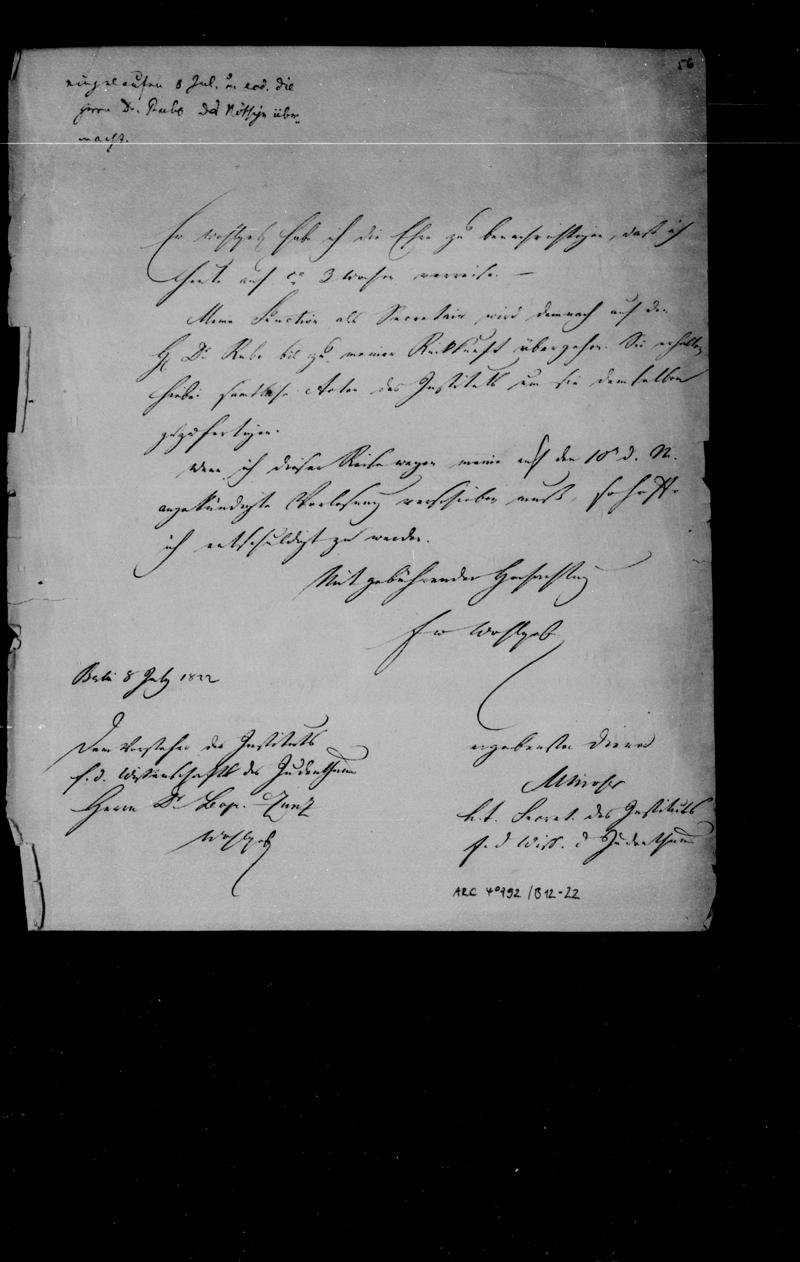 56
eingelaufen 8 Jul. u. eod. die
Herrn Dr. Rubo das Nöthige über-
macht.
Ew Wohlgeb habe ich die Ehre zu benachrichtigen, daß ich
heute auf ca 3 Wochen verreise. —
Meine Function als Secretair wird demnach auf den
H. Dr. Rubo bis zu meiner Rückkunft übergehen. Sie erhalten
hiebei sämtliche Acten des Instituts um sie demselben
zuzufertigen.
Wenn ich dieser Reise wegen meine auf den 10n d. M.
angekündigte Vorlesung verschieben muß, so hoffe
ich entschuldigt zu werden.
Mit gebührender Hochachtung
Ew Wohlgeb
Berlin 8 July 1822
ergebenster Diener
M Moser
h. t. Secret. des Instituts
f. d Wiss. d Judenthums
Dem Vorsteher des Instituts
f. d. Wissenschaft des Judenthums
Herrn Dr Leop. Zunz
Wohlgeb
ARC 4° 792 / B12-22